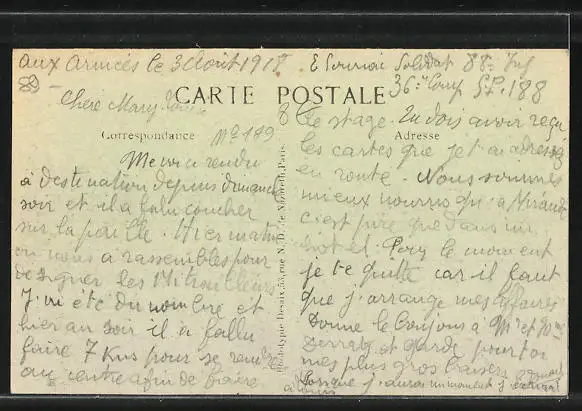 Aux Armées le 3 Août 1918. E Sourriou Soldat 88e Inf
36e Comp S.P. 188
Chère Mary
CARTE POSTALE
Correspondance
Adresse
No 149
Me voici rendu
à destination depuis dimanche
soir et il a falu coucher
sur la paille. Hier matin
on nous a rassembles pour
designer les Mitrailleurs
J'ai été du nombre et
hier au soir il a fallu
faire 7 Kms pour se rendre
au centre afin de faire
le stage. Tu dois avoir reçu
les cartes que je t'ai adressé
en route. Nous sommes
mieux nourris qu'a Mirande
c'est pire que dans un
hotel. Pour le moment
je te quitte car il faut
que j'arrange mes affaires
Donne le bonjour à Mr et Mme
et garde pour toi
mes plus gros baisers
Lorsque j'aurai un moment j'écrirai
Phototype Desaix, 53, rue N.-D. de Nazareth, Paris